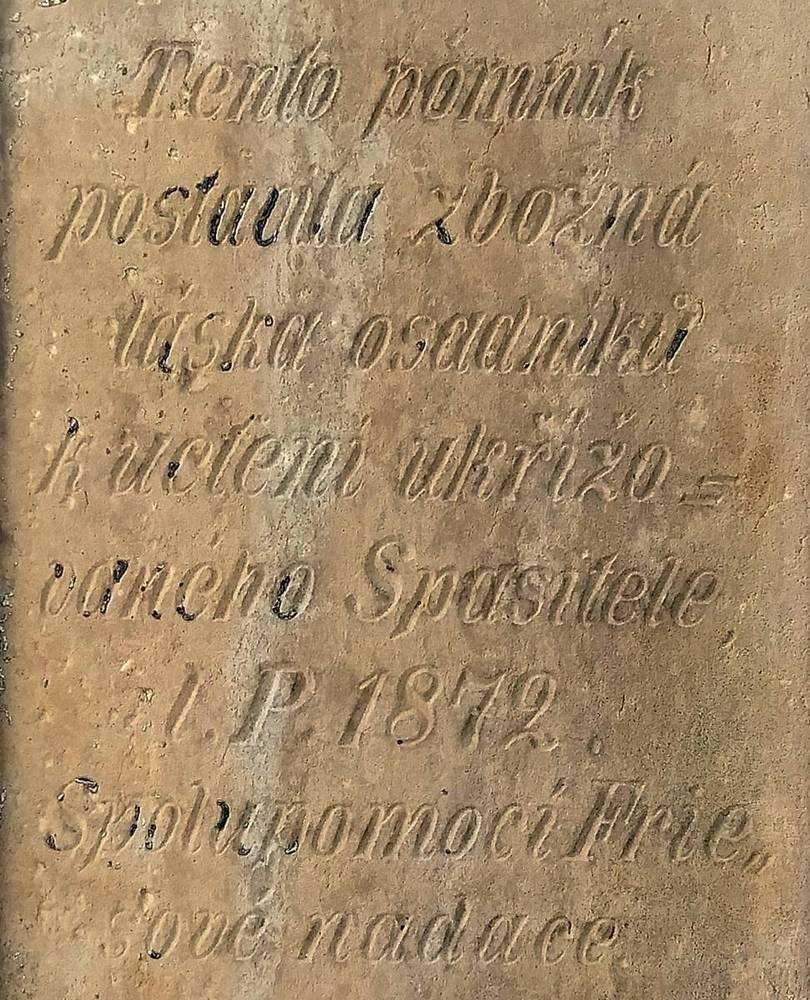 Tento pomník
postavila zbožná
láska osadníků
k uctení ukřižo=
vaného Spasitele
l. P. 1872.
Spolupomocí Frie„
nadace.